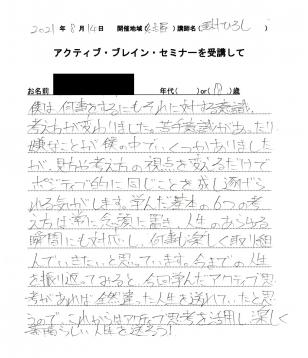 2021年 8月14日 開催地域( )講師名( ひろし )
アクティブ・ブレイン・セミナーを受講して
お名前 年代( )or(18)歳
僕は何事をするにもそれに対する意識、
考え方が変わりました。苦手意識があったり
嫌なことが僕の中で、くつかありました
が、見方や考え方の視点を変えるだけで
ポジティブ的に同じことを成し遂げら
れる気がします。学んだ基本の6つの考
え方は常に念頭に置き、人生のあらゆる
瞬間にも対応し、何事も楽しく取り組
んでいきたいと思っています。今までの人生
を振り返ってみると、今回学んだアクティブ思
考があれば全然違った人生を送れていたと思
うので、これからはアクティブ思考を活用し、楽しく
素晴らしい人生を送ろう!